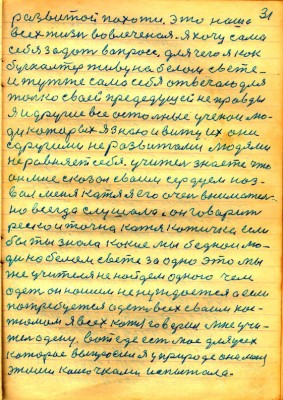 31
развитой похоти. Это наша
всех жизнь вовлеченая. Я хочу сама
себя задать вопрос, для чего я как
бухгалтер живу на белом свете –
и тут же сама себя отвечаю для
только своей предедущей неправды
Я и другие все остольные ученаи лю-
ди которых я знаю и вижу их они
с другими не развитами людями
неравняет себя. учител знаете что
он мне сказал своим сердцем наз-
вал меня Катя я его очен внимател-
но всегда слушала. он говорит
реско и точна Катя Катичка если
бы ты знала какие мы бедная лю-
ди на белом свете за одно это мы
же учителя не найдем одного чем
одет он нашим не нуждается а если
потребуется одет всех своим кос-
тюмом я всех
одену. Вот где ест мое для всех
которае в природе она моя
этими испытала.